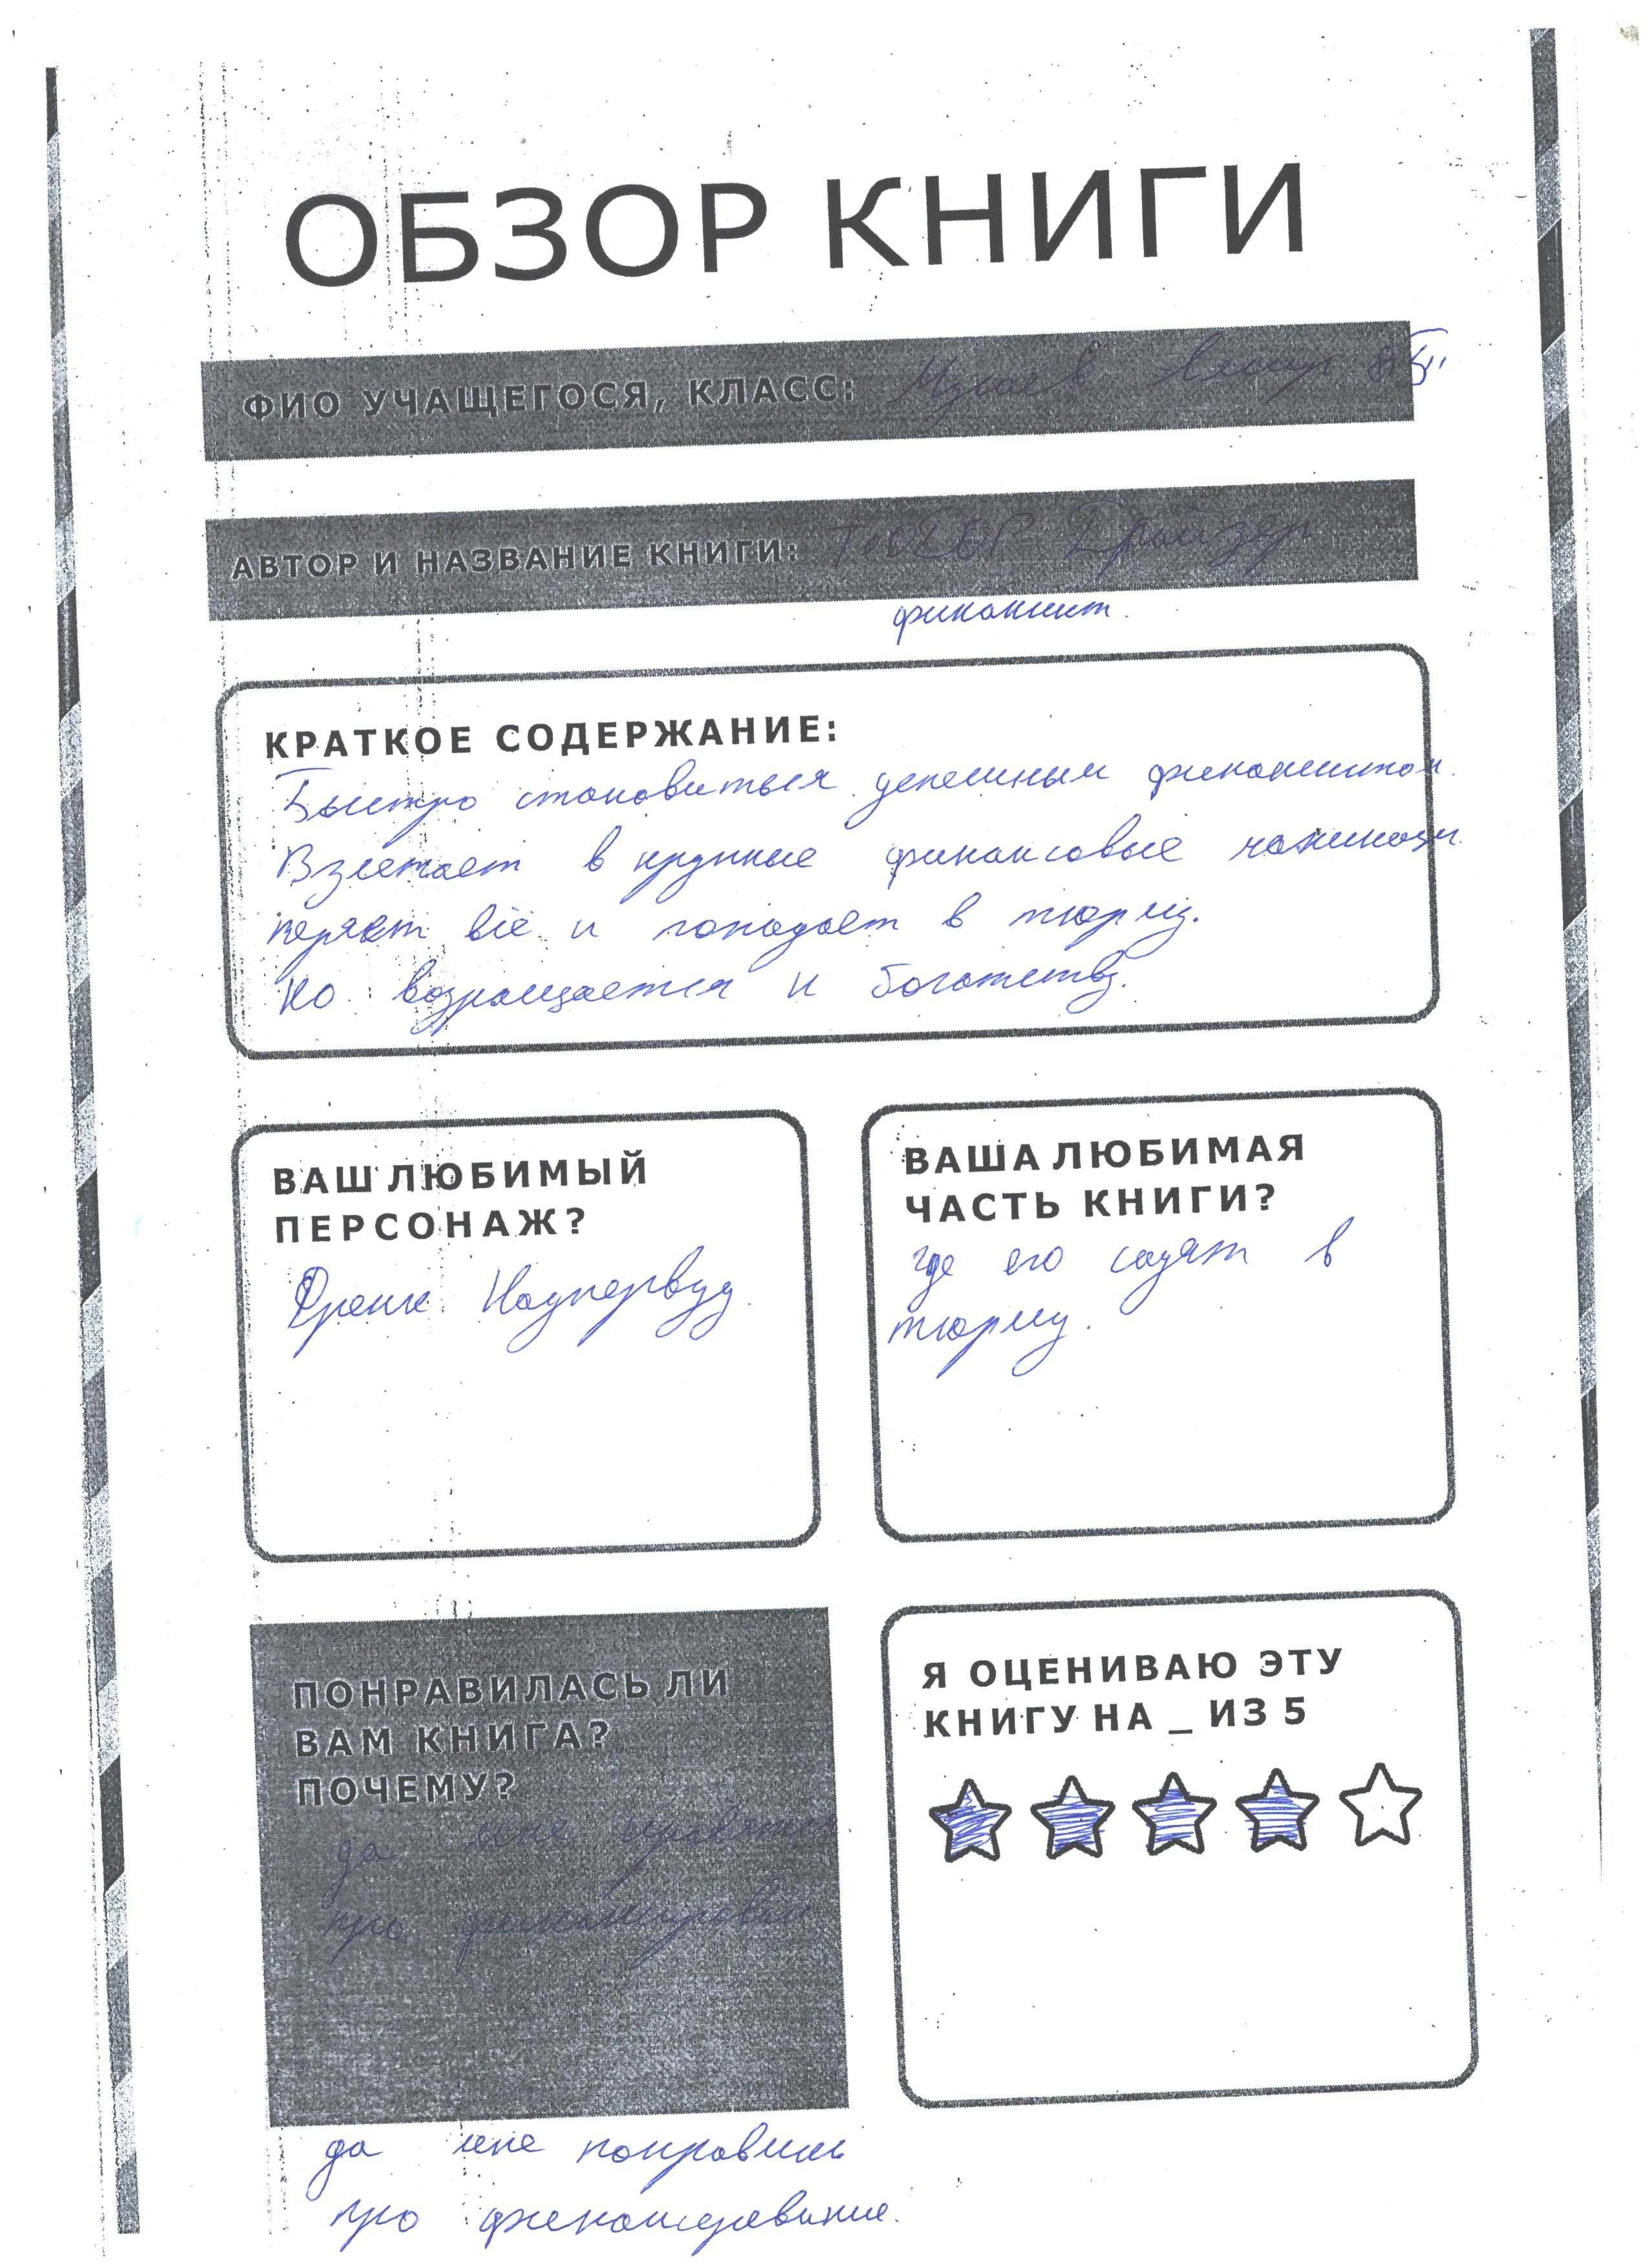 ОБЗОР КНИГИ
ФИО УЧАЩЕГОСЯ, КЛАСС: 8 "Б"
АВТОР И НАЗВАНИЕ КНИГИ: Теодор Драйзер
финансист.
КРАТКОЕ СОДЕРЖАНИЕ:
Быстро становиться успешным финансистом.
Взлетает в крупные финансовые
теряет всё и попадает в тюрьму.
но возращается к богатству.
ВАШ ЛЮБИМЫЙ
ПЕРСОНАЖ?
Френк Каупервуд
ВАША ЛЮБИМАЯ
ЧАСТЬ КНИГИ?
где его садят в
тюрьму.
ПОНРАВИЛАСЬ ЛИ
ВАМ КНИГА?
ПОЧЕМУ?
да мне нравятся
про
Я ОЦЕНИВАЮ ЭТУ
КНИГУ НА _ ИЗ 5
да мне
про финансирование.